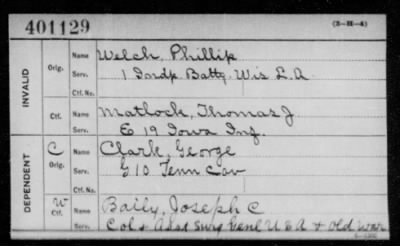 401129
(3-H-4)
INVALID
Orig. Name Welch, Phillip
Serv. 1 Indp. Batty. Wis L.A
Ctf. No.
Ctf. Name Matlock, Thomas J
Serv. E 19 Iowa Inf.
DEPENDENT
C Orig. Name Clark, George
Serv. G 10 Tenn Cav
Ctf. No.
W Ctf. Name Baily, Joseph C
Serv. Col & Asst Surg Genl U S A & Old War